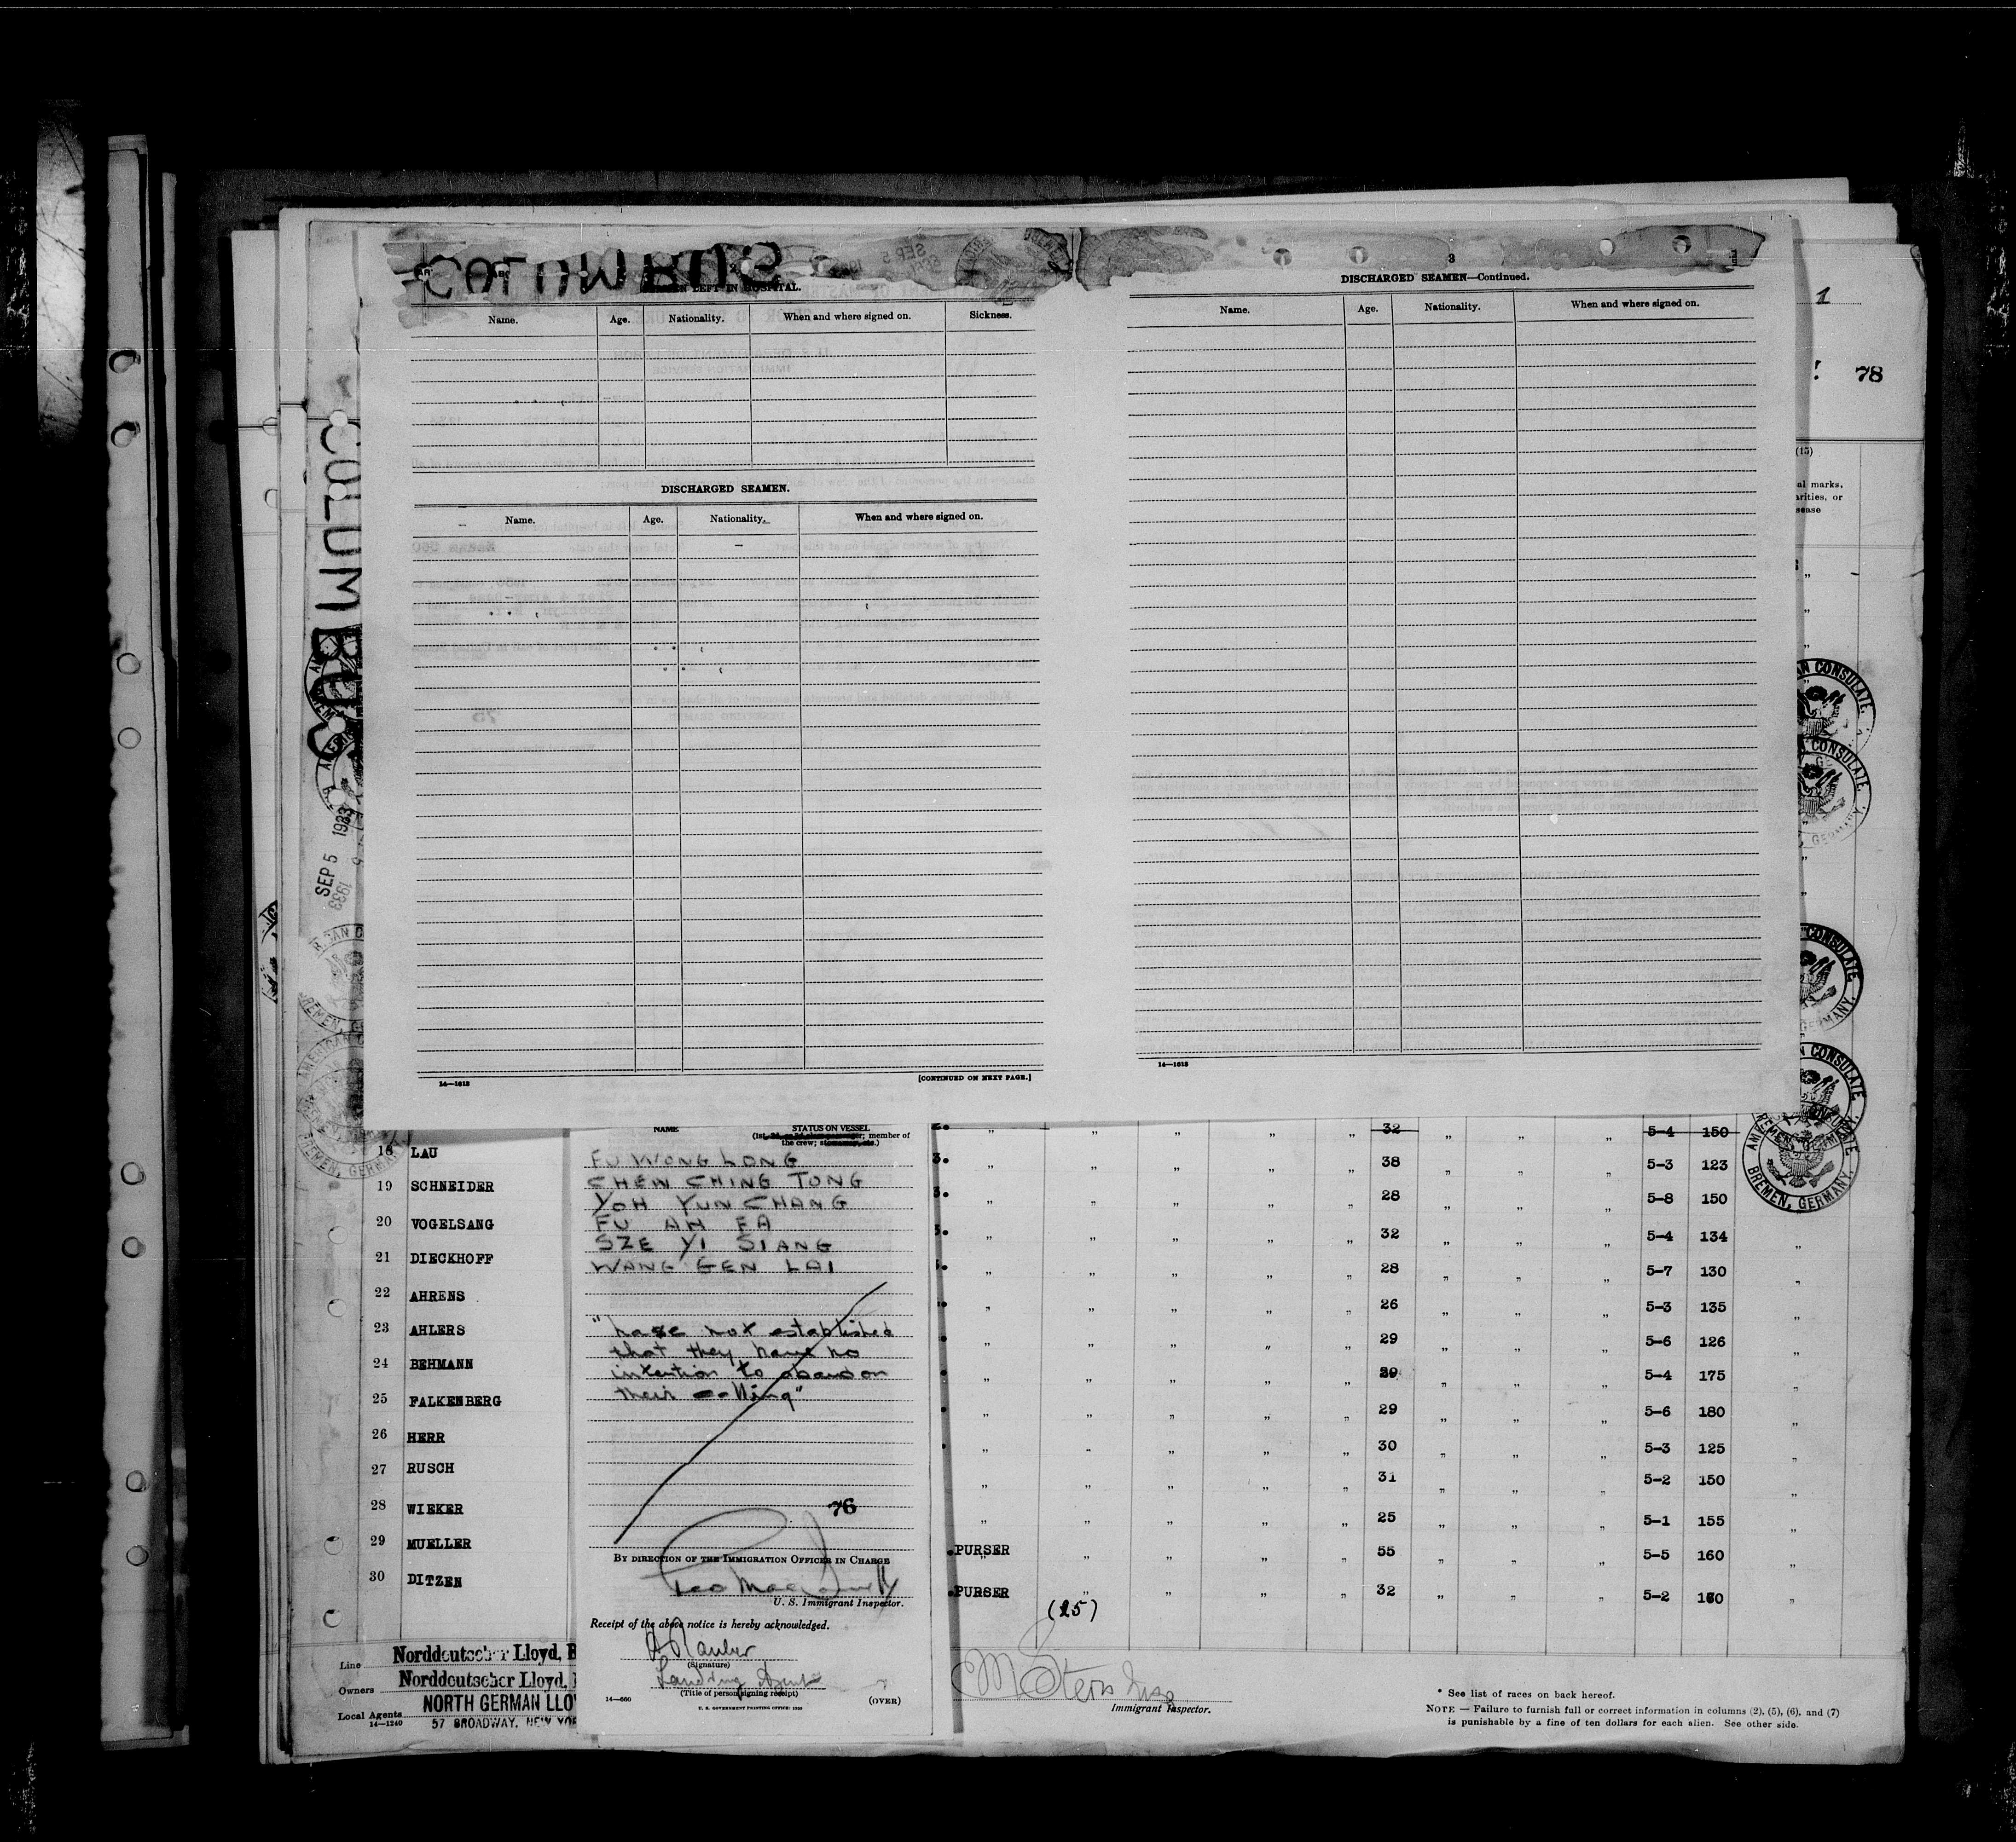 COLUMBUS
SEAMEN LEFT IN HOSPITAL.
Name. Age. Nationality. When and where signed on. Sickness.
DISCHARGED SEAMEN.
Name. Age. Nationality. When and where signed on.
14—1618
[CONTINUED ON NEXT PAGE.]
3
DISCHARGED SEAMEN—Continued.
Name. Age. Nationality. When and where signed on.
14—1618
1
78
(15)
al marks,
arities, or
sease
COLUMBUS
SEP 5 1933
AMERICAN CONSULATE
BREMEN, GERMANY.
NAME STATUS ON VESSEL
(1st, 2d, or 3d class passenger; member of
the crew; stowaway, etc.)
FU WONG LONG
CHEN CHING TONG
YOH YUN CHANG
FU AH FA
SZE YI SIANG
WANG GEN LAI
"have not established
that they have no
intention to abandon
their calling"
76
BY DIRECTION OF THE IMMIGRATION OFFICER IN CHARGE
U. S. Immigrant Inspector.
Receipt of the above notice is hereby acknowledged.
(Signature)
Landing Agent
(Title of person signing receipt)
14—660 (OVER)
U. S. GOVERNMENT PRINTING OFFICE: 1930
32 5-4 150
18 LAU 38 5-3 123
19 SCHNEIDER 28 5-8 150
20 VOGELSANG 32 5-4 134
21 DIECKHOFF 28 5-7 130
22 AHRENS 26 5-3 135
23 AHLERS 29 5-6 126
24 BEHMANN 29 5-4 175
25 FALKENBERG 29 5-6 180
26 HERR 30 5-3 125
27 RUSCH 31 5-2 150
28 WIEKER 25 5-1 155
29 MUELLER PURSER 55 5-5 160
30 DITZEN PURSER 32 5-2
(25)
Line Norddeutscher Lloyd, B
Owners Norddeutscher Lloyd,
Local Agents NORTH GERMAN LLO
14—1240 57 BROADWAY, NEW YOR
Immigrant Inspector.
* See list of races on back hereof.
NOTE — Failure to furnish full or correct information in columns (2), (5), (6), and (7)
is punishable by a fine of ten dollars for each alien. See other side.